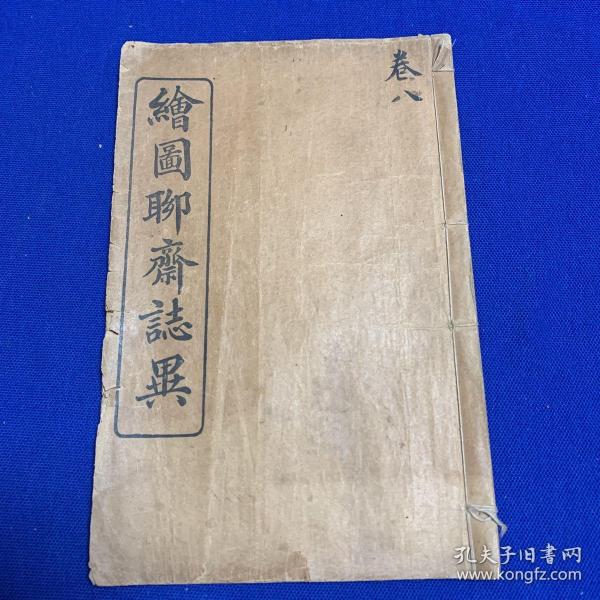 卷八
繪圖聊齋誌異
孔夫子旧書网
www.kongfz.com